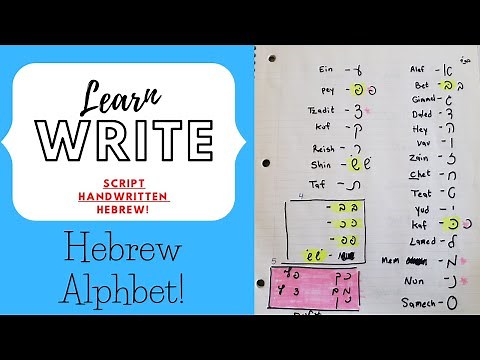 Learn
WRITE
SCRIPT
HANDWRITTEN
HEBREW!
Hebrew
Alphbet!
Alaf - א
Bet - ב ב
Gimmel - ג
Daled - ד
Hey - ה
Vav - ו
Zain - ז
Chet - ח
Teat - ט
Yud - י
Kaf - כ כ
Lamed - ל
Mem - מ
Nun - נ
Samech - ס
Ein - ע
Pey - פ פ
Tzadit - צ
Kuf - ק
Reish - ר
Shin - ש ש
Taf - ת
4
- ב ב
- כ כ
- פ פ
- ש ש
5